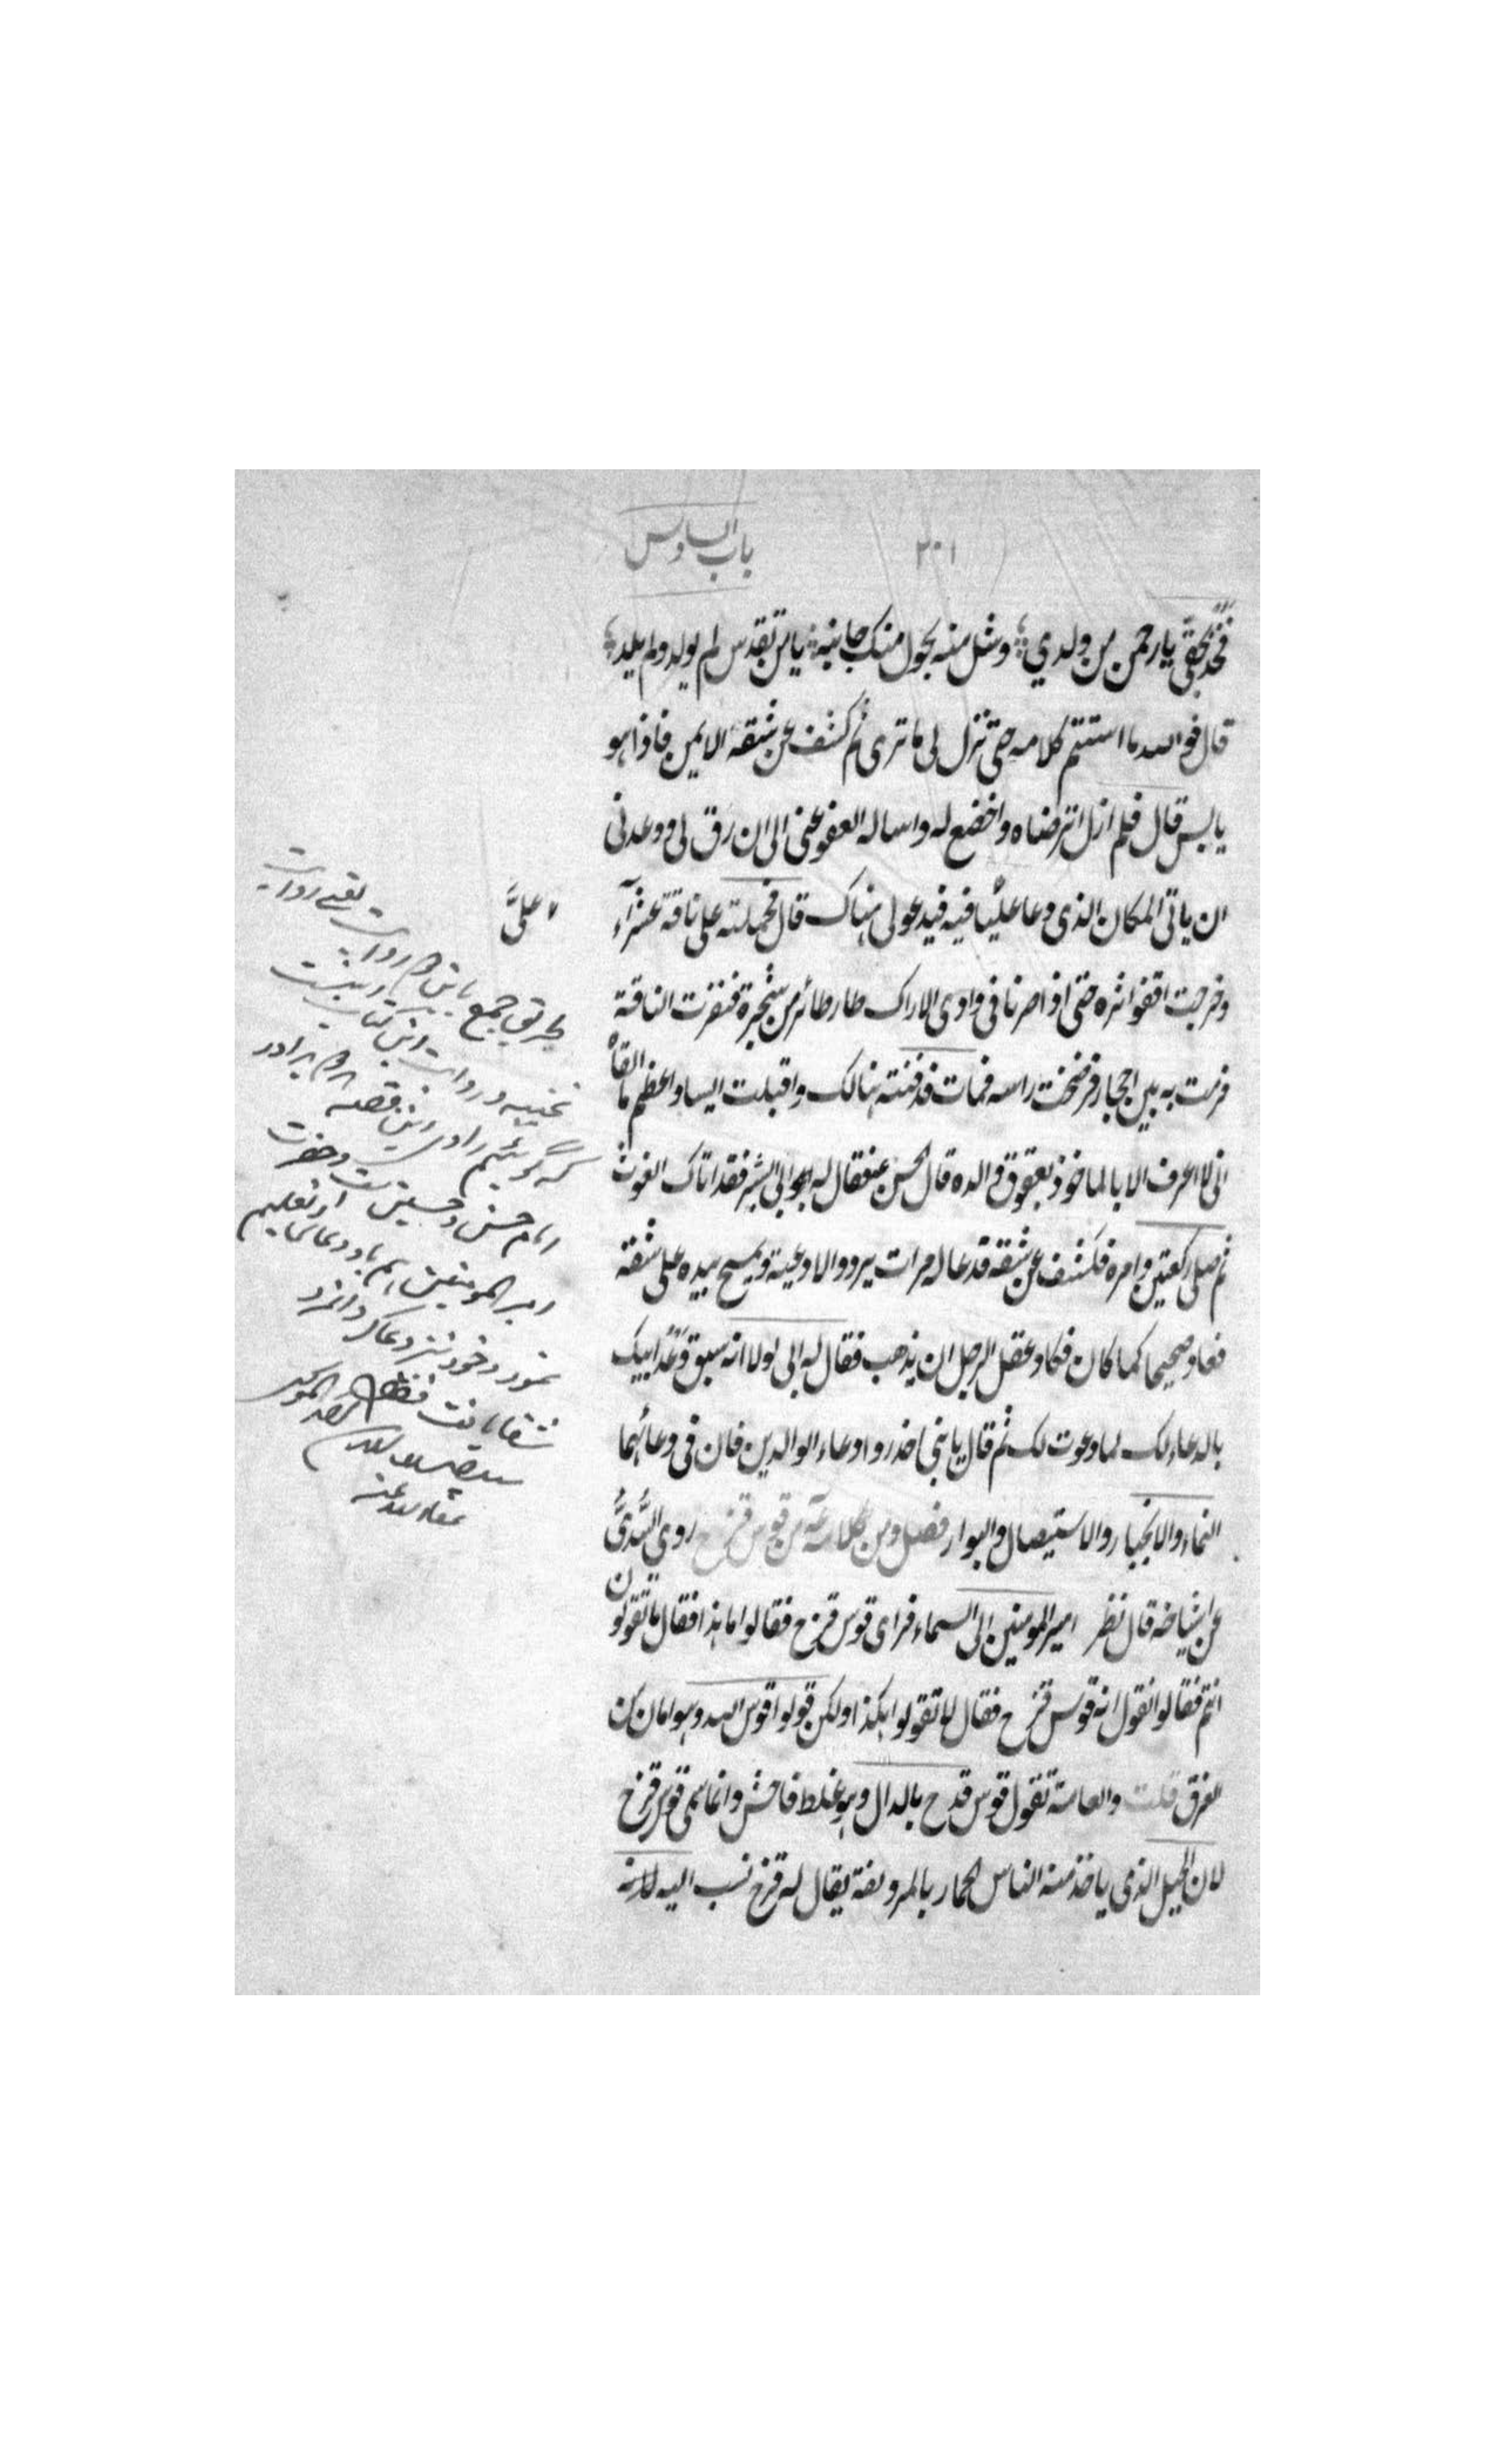 باب السادس
٢٠١
فخذ بحقی یا رحمن من ولدي وشل منه بحول منک جانبه یا من تقدس لم یولد ولم یلد
قال فوالله ما استتم کلامه حتی نزل لی ما تری ثم کشف عن شقه الایمن فاذا هو
یابس قال فلم ازل اترضاه واخضع له واساله العفو عنی الی ان رق لی ووعدنی
ان یاتی المکان الذی دعا علیّا فیه فیدعو لی هناک قال فحملته علی ناقة عشرآء
علیَّ
وخرجت اقفو اثره حتی اذا صرنا فی وادی الاراک طار طائر من شجرة فنفرت الناقة
فرمت به بین احجار فرضخت راسه فمات فدفنته هنالک واقبلت ایسا واعظم ما القاه
انی لا اعرف الا بالماخوذ بعقوق والده قال الحسن فقال له ابی ابشر فقد اتاک الغوث
ثم صلی رکعتین وامره فکشف عن شقه فدعا له مرات یردد الادعیة ویمسح بیده علی شقه
فعاد صحیحا کما کان فکاد عقل الرجل ان یذهب فقال له ابی لولا انه سبق وعد ابیک
بالدعاء لک لما دعوت لک ثم قال یا بنی احذروا دعاء الوالدین فان فی دعائهما
النماء والانجبار والاستیصال والبوار فصل ومن کلامه عن قوس قزح روی السُّدیُّ
عن اشیاخه قال نظر امیر المومنین الی السماء فرای قوس قزح فقالوا ما هذا فقال ما تقولون
انتم فقالوا نقول انه قوس قزح فقال لا تقولوا هکذا ولکن قولوا قوس الله وهو امان من
الغرق قلت والعامة تقول قوس قدح بالدال وهو غلط فاحش وانما سمی قوس قزح
لان الجبل الذی یاخذ منه الناس الجمار بالمزدلفة یقال له قزح نسب الیه لانه
طریق جمع
این قصه
امام حسن و حسین و حضرت
امیر المومنین
نمود و خود نیز دعا کرد
شفا یافت فقط
عفا الله عنه